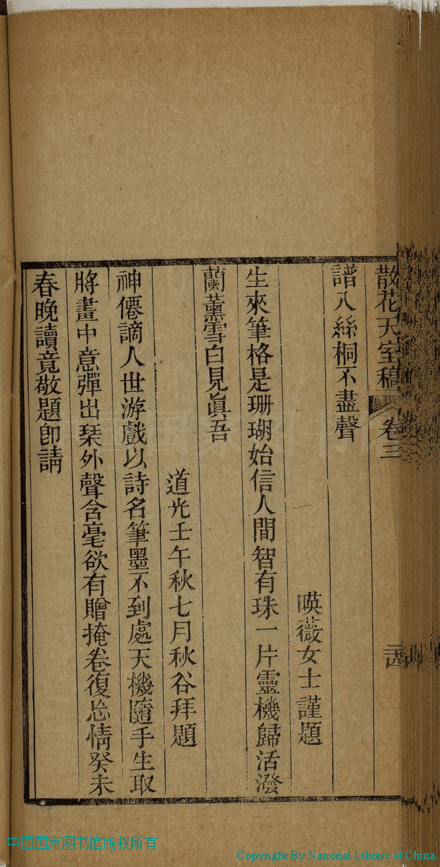 散花天室稿 卷三
譜入絲桐不盡聲
暎薇女士謹題
生來筆格是珊瑚始信人間智有珠一片靈機歸活潑
蘭薰雪白見眞吾
道光壬午秋七月秋谷拜題
神僊謫人世游戲以詩名筆墨不到處天機隨手生取
將畫中意彈出琹外聲含毫欲有贈掩卷復忘情癸未
春晚讀竟敬題卽請
中国国家图书馆版权所有
Copyright By National Library of China